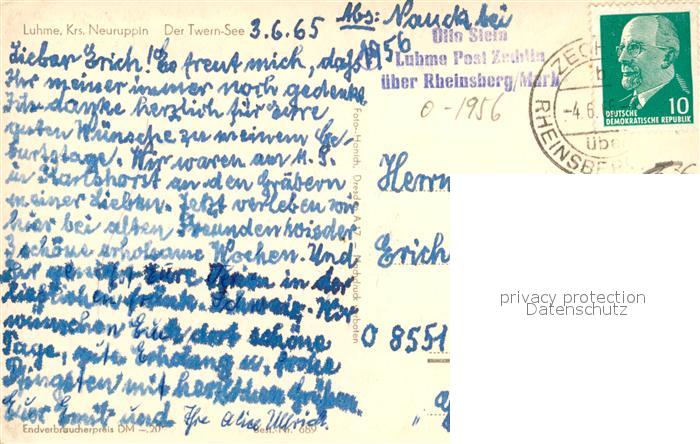 Luhme, Krs. Neuruppin Der Twern-See
3.6.65
Abs: Nauck bei
Otto Stein
Luhme Post Zechlin
über Rheinsberg/Mark
1956
0-1956
DEUTSCHE
DEMOKRATISCHE REPUBLIK
10
ZECH
b
-4.6.
übe
RHEINSBER
Lieber Erich! Es freut mich, daß
Ihr meiner immer noch gedenkt.
Ich danke herzlich für Eure
guten Wünsche zu meinem Ge-
burtstage. Wir waren am
in Karlshorst an den Gräbern
meiner Lieben. Jetzt verleben wir
hier bei alten Freunden wieder
3 schöne erholsame Wochen. Und
Ihr genießt Eure Ferien in der
lieblichen fränk. Schweiz. Wir
wünschen Euch dort schöne
Tage, gute Erholung u. frohe
Pfingsten mit herzlichen Grüßen.
Euer Ernst und Ihre Alice Ullrich.
Endverbraucherpreis DM -.20
Best.-Nr. 689
Foto-Hanich, Dresden A 17 Nachdruck verboten
Herrn
Erich
O 8551
privacy protection
Datenschutz